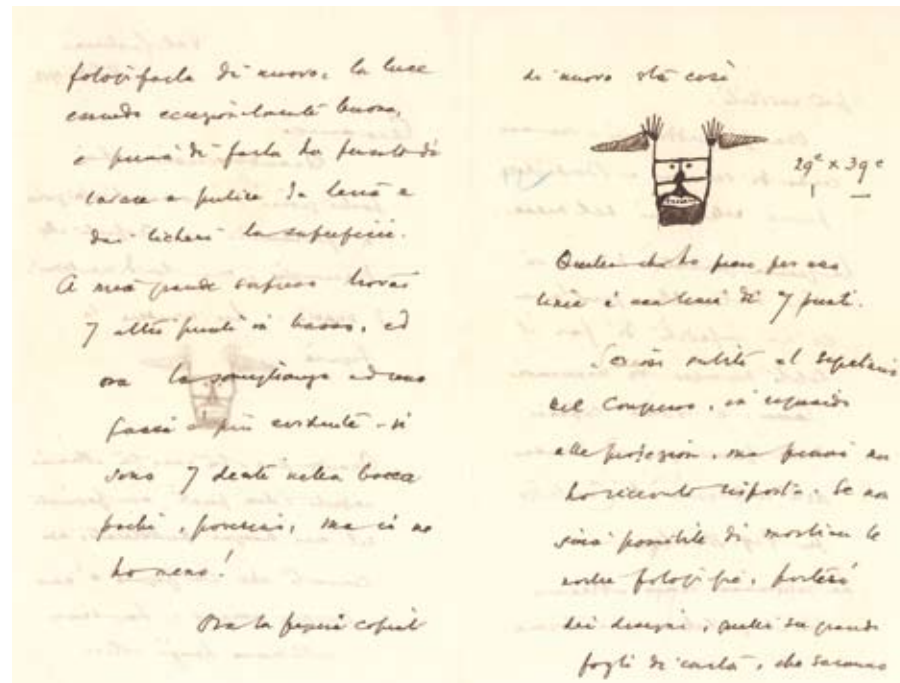 fotografarla di nuovo, la luce
essendo eccezionalmente buona,
e prima di farla ho pensato di
lavare e pulire da terra e
dai licheni la superficie.
A mia grande sorpresa trovai
7 altri punti in basso, ed
ora la somiglianza ad una
faccia è più evidente - vi
sono 7 denti nella bocca
pochi, poverino, ma io ne
ho meno!
Ora la figura copiata
di nuovo sta così
29c x 39c
Quella che ho preso per una
linea è una linea di 7 punti.
Scrissi subito al Segretario
del Congresso, in riguardo
alle proiezioni, ma finora non
ho ricevuto risposta. Se non
sarà possibile di mostrare le
nostre fotografie, porterò
dei disegni, su grandi
fogli di carta, che saranno